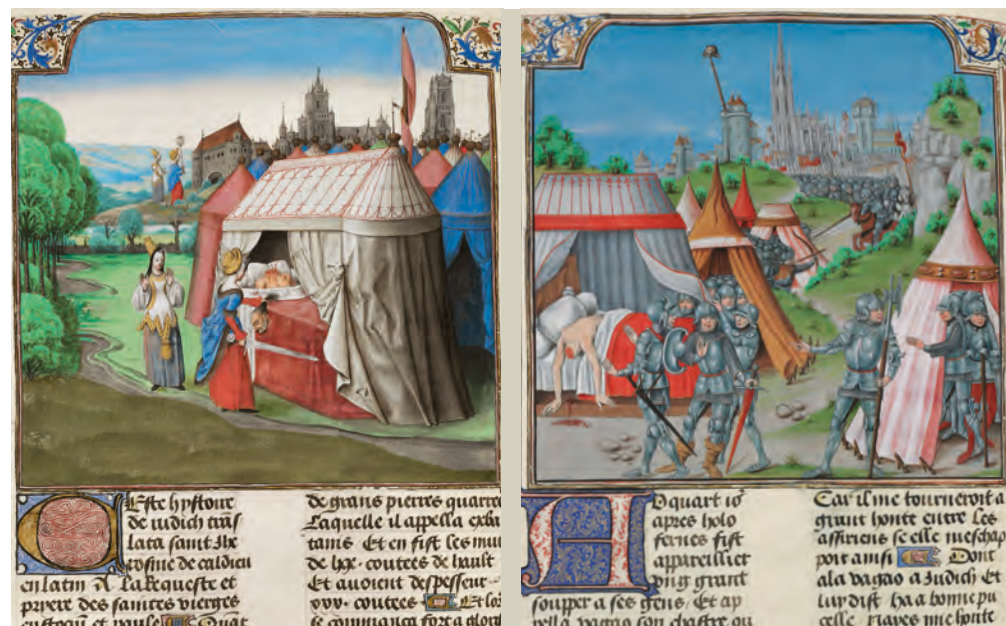 CEste hystoire
de iudich trãs
lata saint Ihe
rosme de caldieu
en latin A la Requeste et
pryere des sainctes vierges
et paule Quãt
de grans pierres quarre
Laquelle il appella exba
tanis Et en fist les mu
de lxx. coutees de hault
Et auoient despesseur
xxx. coutees Et lo
se commanca fort a glori
AD quart io
apres holo
fernes fist
appareillier
ung grant
soupper a ses gens, Et ap
pella vagao son chastre ou
Car il me tourneroit a
grant honte entre les
assiriens se elle meschap
poit ainsi Dont
ala vagao a Judich Et
luy dist ha a bonne pu
celle Nayes mie honte